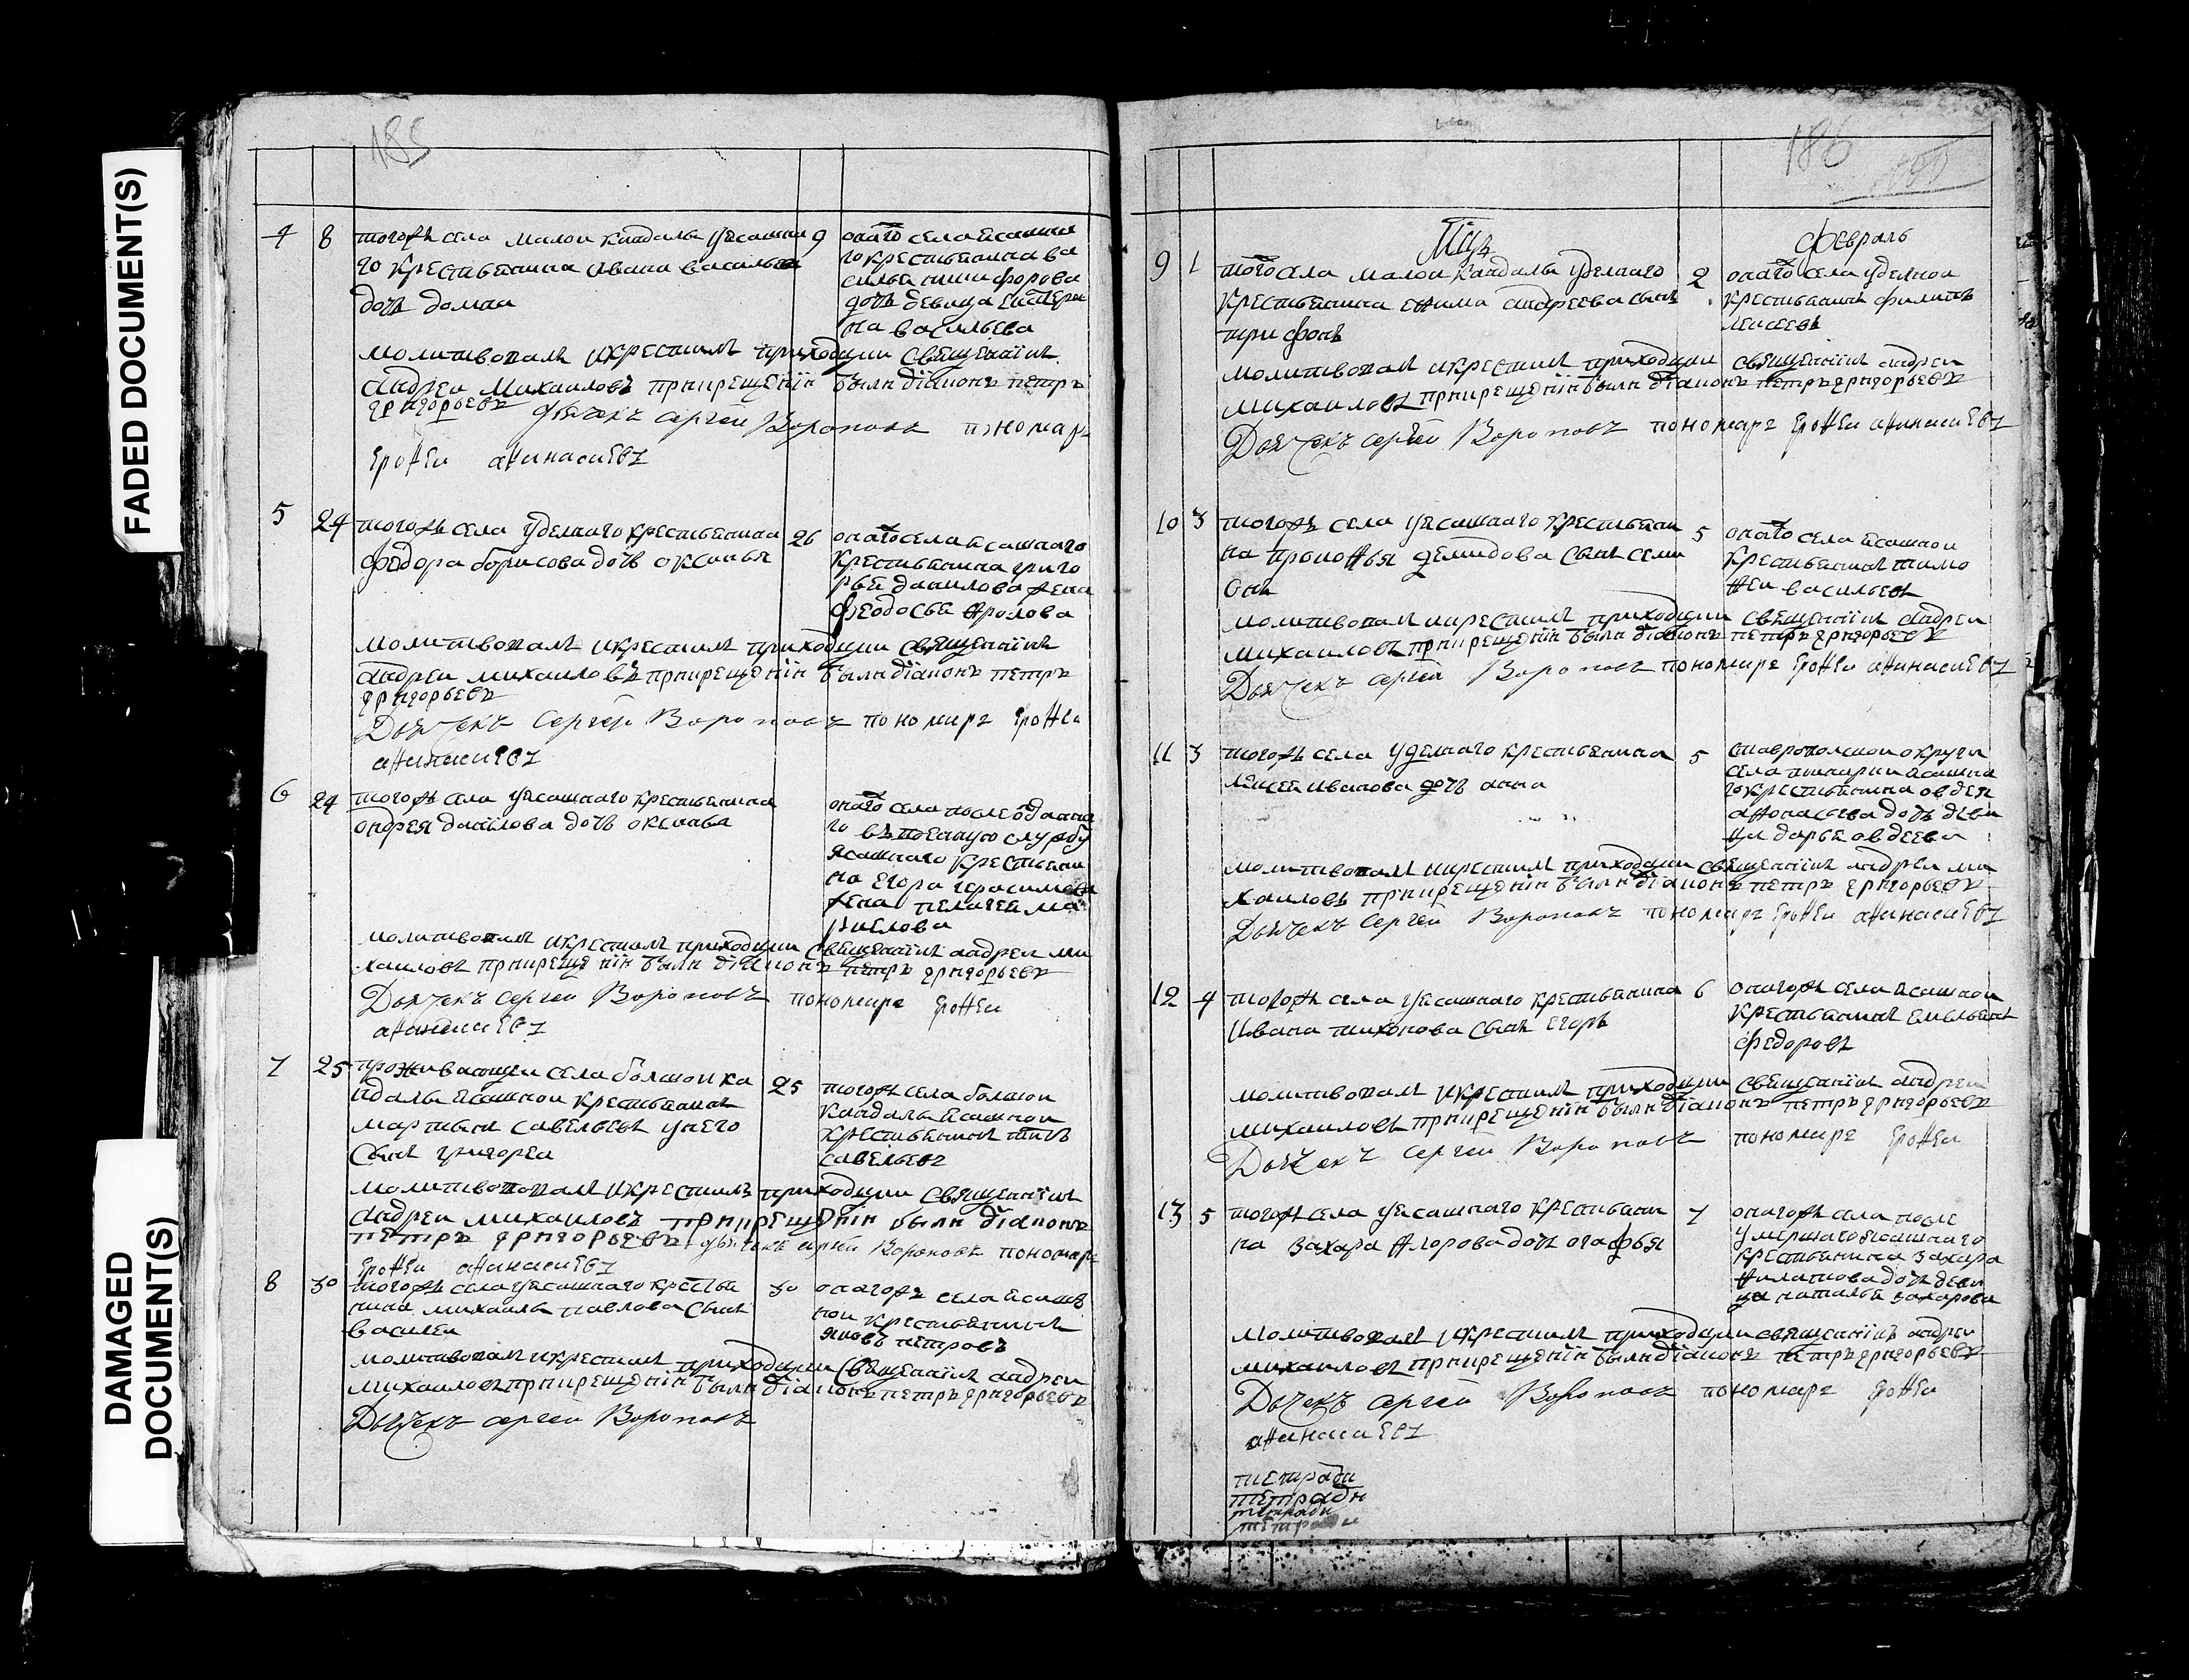 FADED DOCUMENT(S)
DAMAGED
DOCUMENT(S)
185
4 8 тогожъ села малои кандалы уясашна 9
го крестьянина ивана васильева
дочь домна
онаго села ясашна
го крестьянина ва
силья никифорова
дочь девица екатери
на васильева
молитвовалъ икрестилъ приходцки священникъ
андреи михаиловъ прикрещении были дїаконъ петръ
григорьевъ дьячекъ сергей Вороновъ пономарь
ерофеи афанасиевъ
5 24 тогожъ села уделнаго крестьянина 26
федора борисова дочь оксинья
онаго села ясашнаго
крестьянина григо
рьи данилова жена
феодосья фролова
молитвовалъ икрестилъ приходцки священникъ
андреи михаиловъ прикрещении были дїаконъ петръ
григорьевъ
Дьячекъ Сергей Вороновъ пономарь ерофеи
афанасиевъ
6 24 тогожъ села уясашнаго крестьянина
ондрея данилова дочь оксинья
онаго села после отданна
го въ военную службу
ясашнаго крестьяни
на егора герасимова
жена пелагея
молитвовалъ икрестилъ приходцки священникъ андреи ми
хаиловъ прикрещении были дїаконъ петръ григорьевъ
Дьячекъ Сергеи Вороновъ пономарь ерофеи
афанасиевъ
7 25 проживающеи села болшои ка 25
ндалы ясашнои крестьянинъ
мартынъ савельевъ унего
сынъ григореи
тогожъ села болшои
кандалы ясашнои
крестьянинъ титъ
савельевъ
молитвовалъ икрестилъ приходцки священникъ
андреи михаиловъ прикрещении были дїаконъ
петръ григорьевъ дьячекъ сергей Вороновъ пономарь
ерофеи афанасиевъ
8 30 тогожъ села уясашнаго крестья 30
нина михаилы павлова сынъ
василеи
онагожъ села ясаш
нои крестьянинъ
яковъ петровъ
молитвовалъ икрестилъ приходцки священникъ андреи
михаиловъ прикрещении были дїаконъ петръ григорьевъ
Дьячекъ сергеи Вороновъ
186
февраль
9 1 того села малои кандалы уделнаго 2
крестьянина екима андреева сынъ
трифонъ
онаго села уделнои
крестьянинъ филипъ
молитвовалъ икрестилъ приходцки священникъ андреи
михаиловъ прикрещении были дїаконъ петръ григорьевъ
Дьячекъ сергеи Вороновъ пономарь ерофеи афанасиевъ
10 3 тогожъ села уясашнаго крестьяни 5
на прокофья демидова сынъ семи
онъ
онаго села ясашнои
крестьянинъ тимо
феи васильевъ
молитвовалъ икрестилъ приходцки священникъ андреи
михаиловъ прикрещении были дїаконъ петръ григорьевъ
Дьячекъ Сергеи Вороновъ пономарь ерофеи афанасиевъ
11 3 тогожъ села уделнаго крестьянина 5
иванова дочь анна
ставропольскои округи
села ясашна
го крестьянина овдея
афонасьева дочь деви
ца дарья овдеева
молитвовалъ икрестилъ приходцки священникъ андреи ми
хаиловъ прикрещении были дїаконъ петръ григорьевъ
Дьячекъ Сергеи Вороновъ пономарь ерофеи афанасиевъ
12 4 тогожъ села уясашнаго крестьянина 6
ивана тихонова сынъ егоръ
онагожъ села ясашнои
крестьянинъ емельянъ
федоровъ
молитвовалъ икрестилъ приходцки священникъ андреи
михаиловъ прикрещении были дїаконъ петръ григорьевъ
Дьячекъ Сергеи Вороновъ пономарь ерофеи
13 5 тогожъ села уясашнаго крестьяни 7
на захара фролова дочь огафья
онагожъ села после
умершаго ясашнаго
крестьянина захара
филатова дочь деви
ца наталья захарова
молитвовалъ икрестилъ приходцки священникъ андреи
михаиловъ прикрещении были дїаконъ петръ григорьевъ
Дьячекъ Сергеи Вороновъ пономарь ерофеи
афанасиевъ
тетради
тетради
тетради
тетради